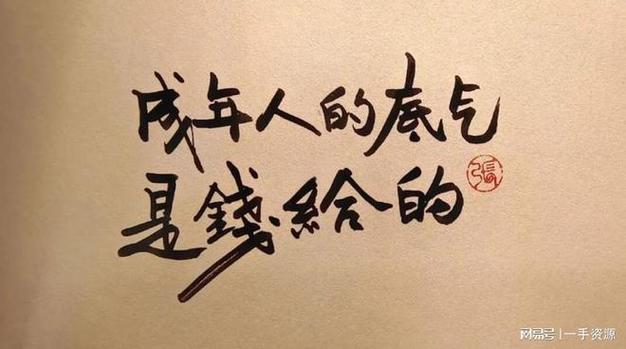 成年人的底气
是錢給的
張
网易号|一手资源